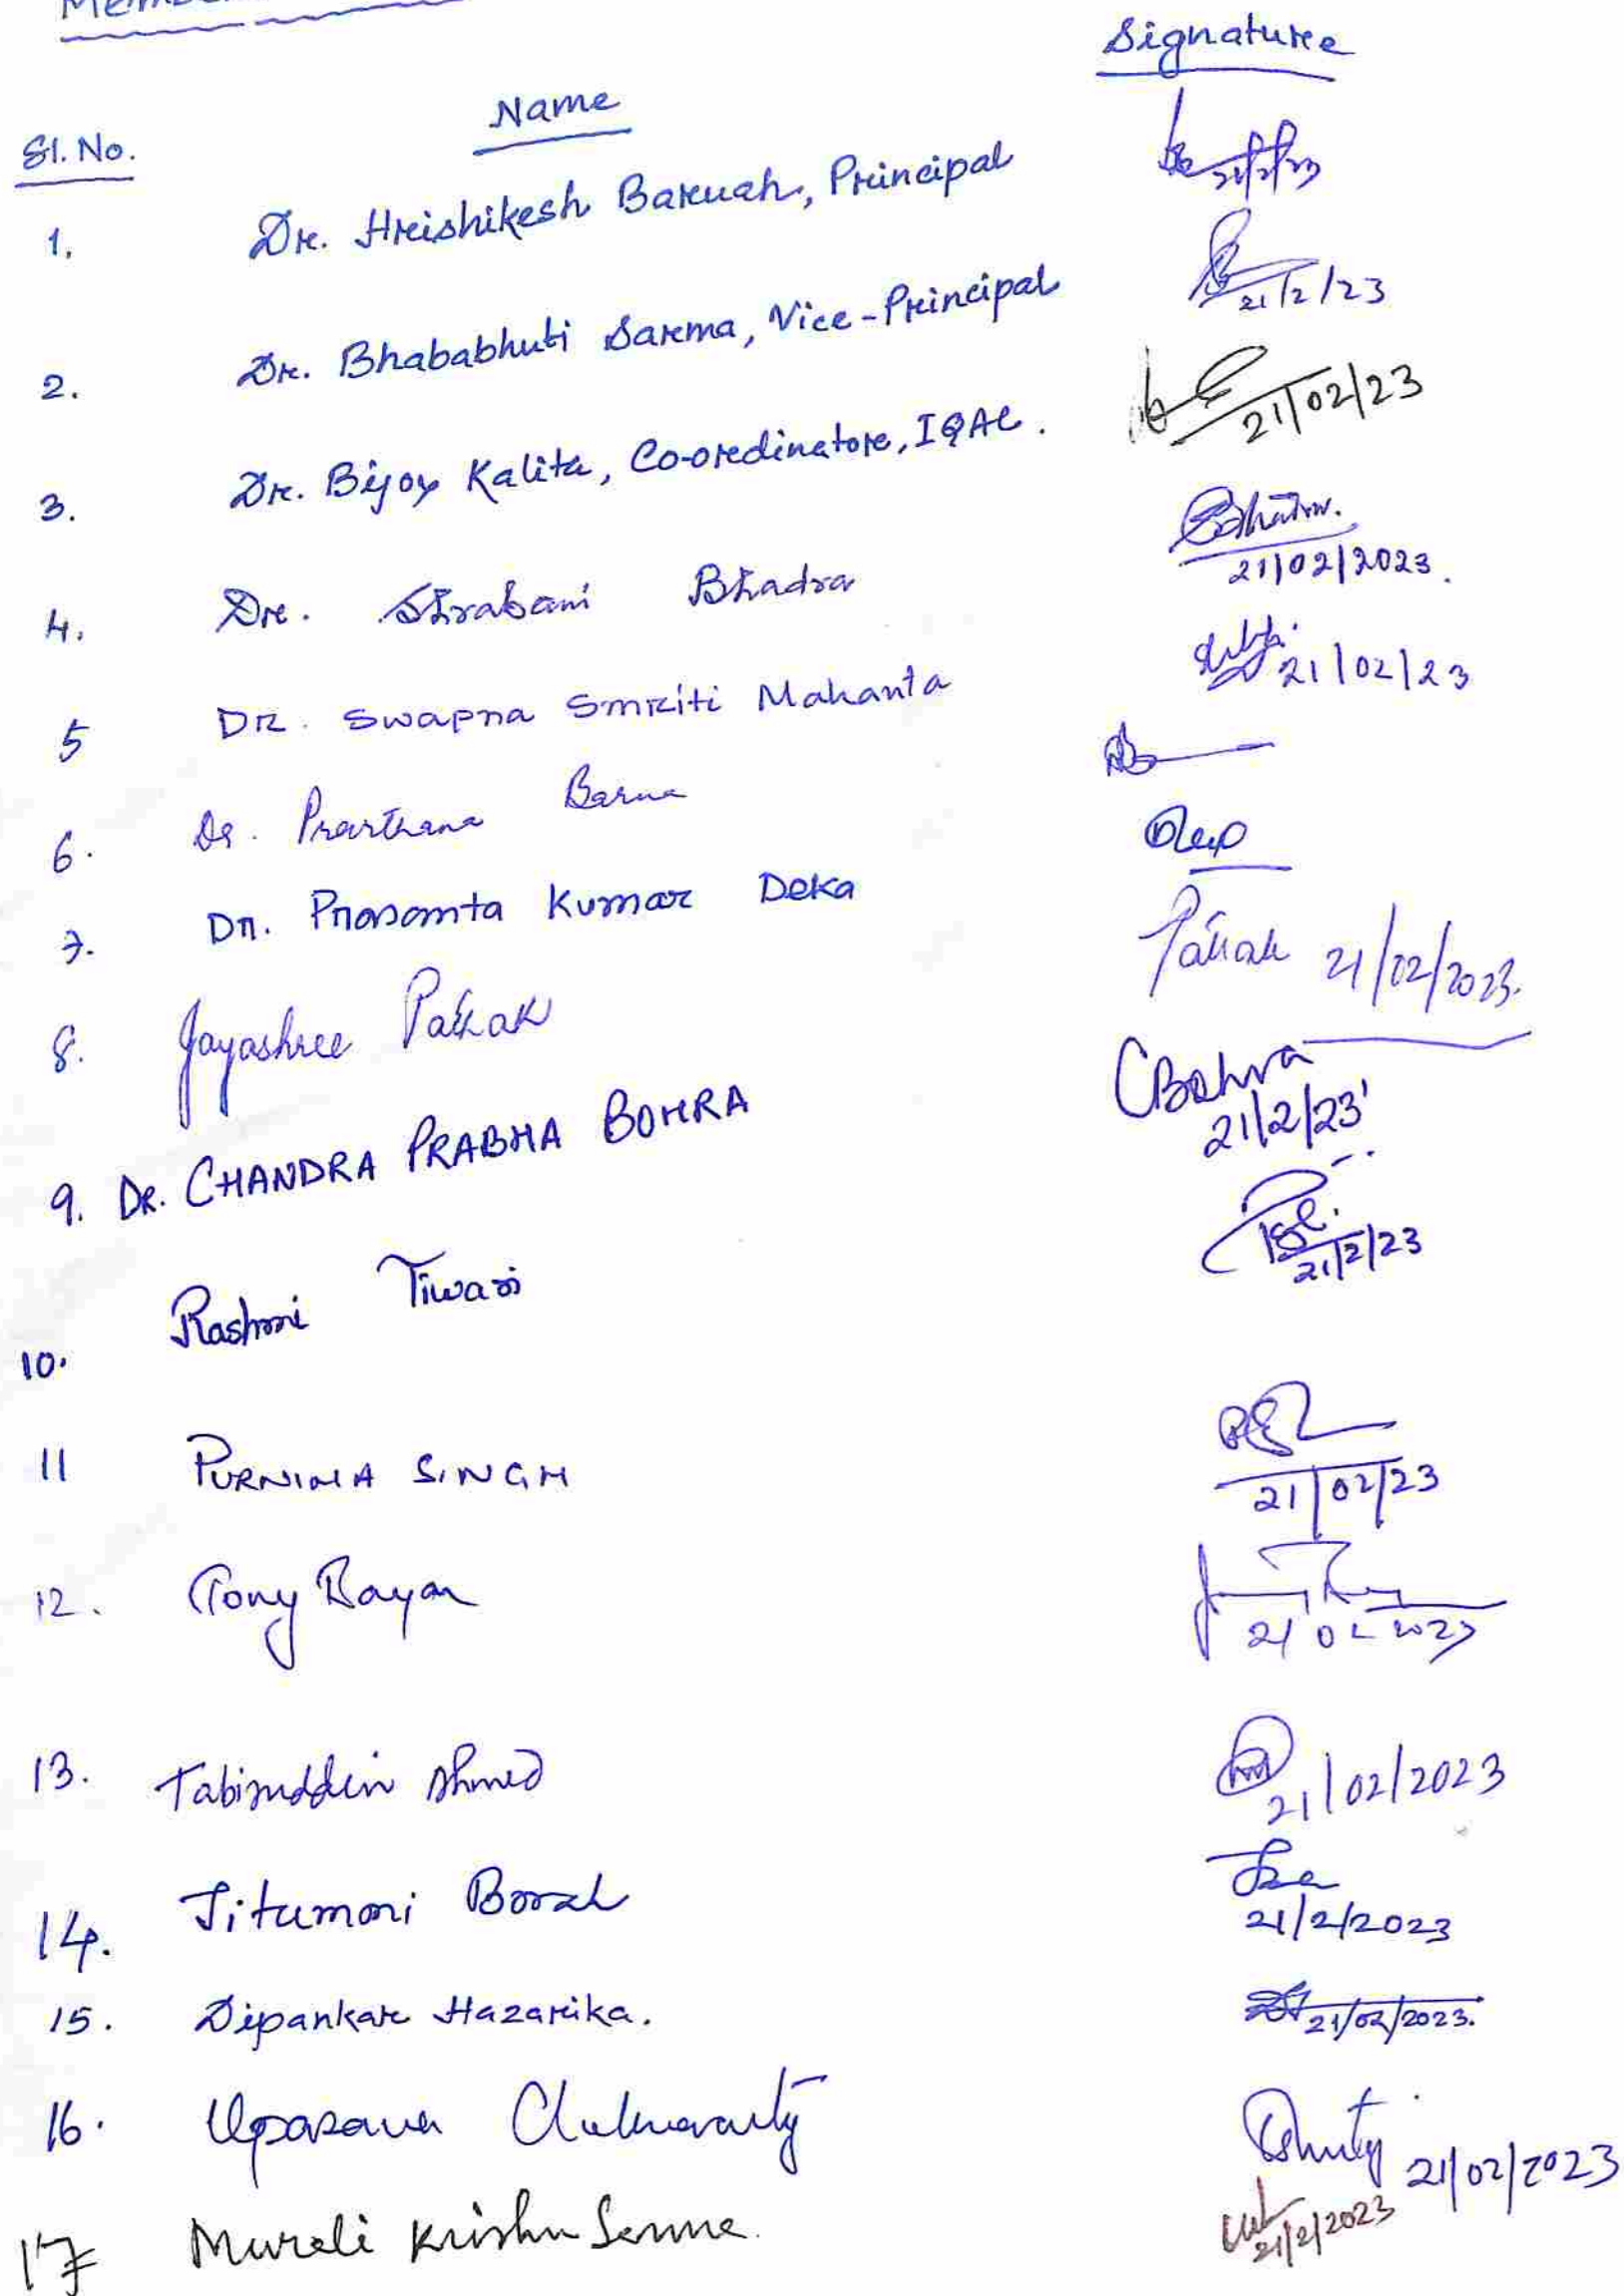 Signature
Name
Sl. No.
1. Dr. Hrishikesh Baruah, Principal 21/2/23
2. Dr. Bhababhuti Sarma, Vice-Principal 21/2/23
3. Dr. Bijoy Kalita, Co-ordinator, IQAC. 21/02/23
4. Dr. Shrabani Bhadra 21/02/2023.
5 DR. Swapna Smriti Mahanta 21/02/23
6. Dr. Prarthana Barua
7. Dr. Prasanta Kumar Deka
8. Jayashree Pathak Pathak 21/02/2023.
9. DR. CHANDRA PRABHA BOHRA CBohra 21/2/23
10. Rashmi Tiwari 21/2/23
11 PURNIMA SINGH 21/02/23
12. Tony Bayan 21/02/2023
13. Tabiruddin Ahmed 21/02/2023
14. Jitumoni Borah 21/2/2023
15. Dipankar Hazarika. 21/02/2023.
16. Upasana Chakravarty 21/02/2023
17 Murali Krishna Sarma. 21/2/2023